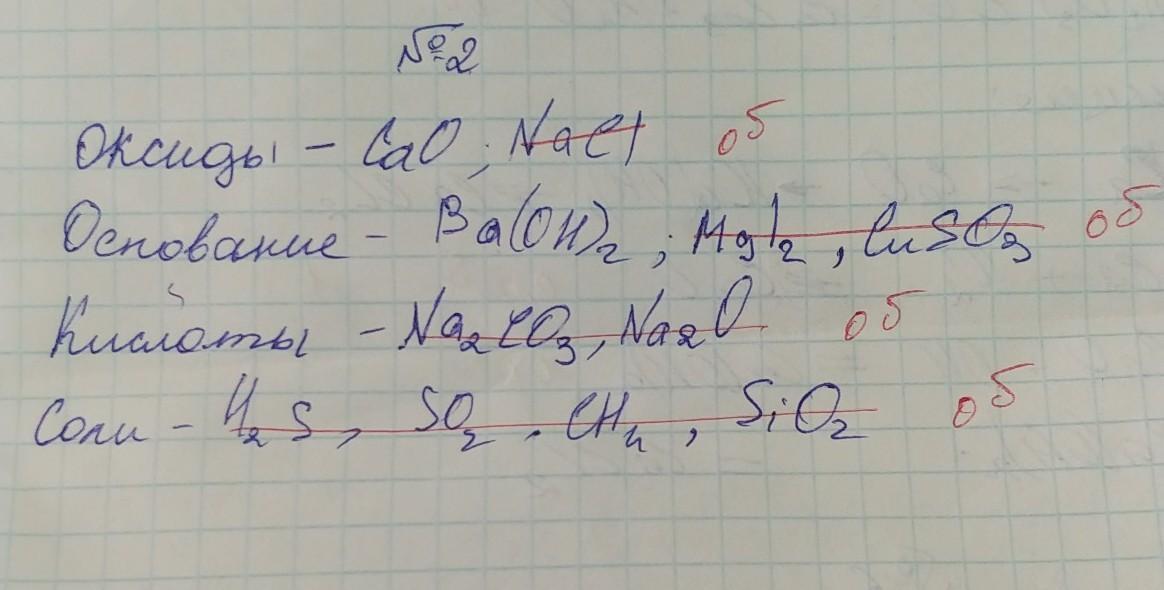 №2
Оксиды – CaO ; NaCl 0б
Основание – Ba(OH)2 ; MgI2 , CuSO3 0б
Кислоты – Na2CO3 , Na2O 0б
Соли – H2S , SO2 , CH4 , SiO2 0б